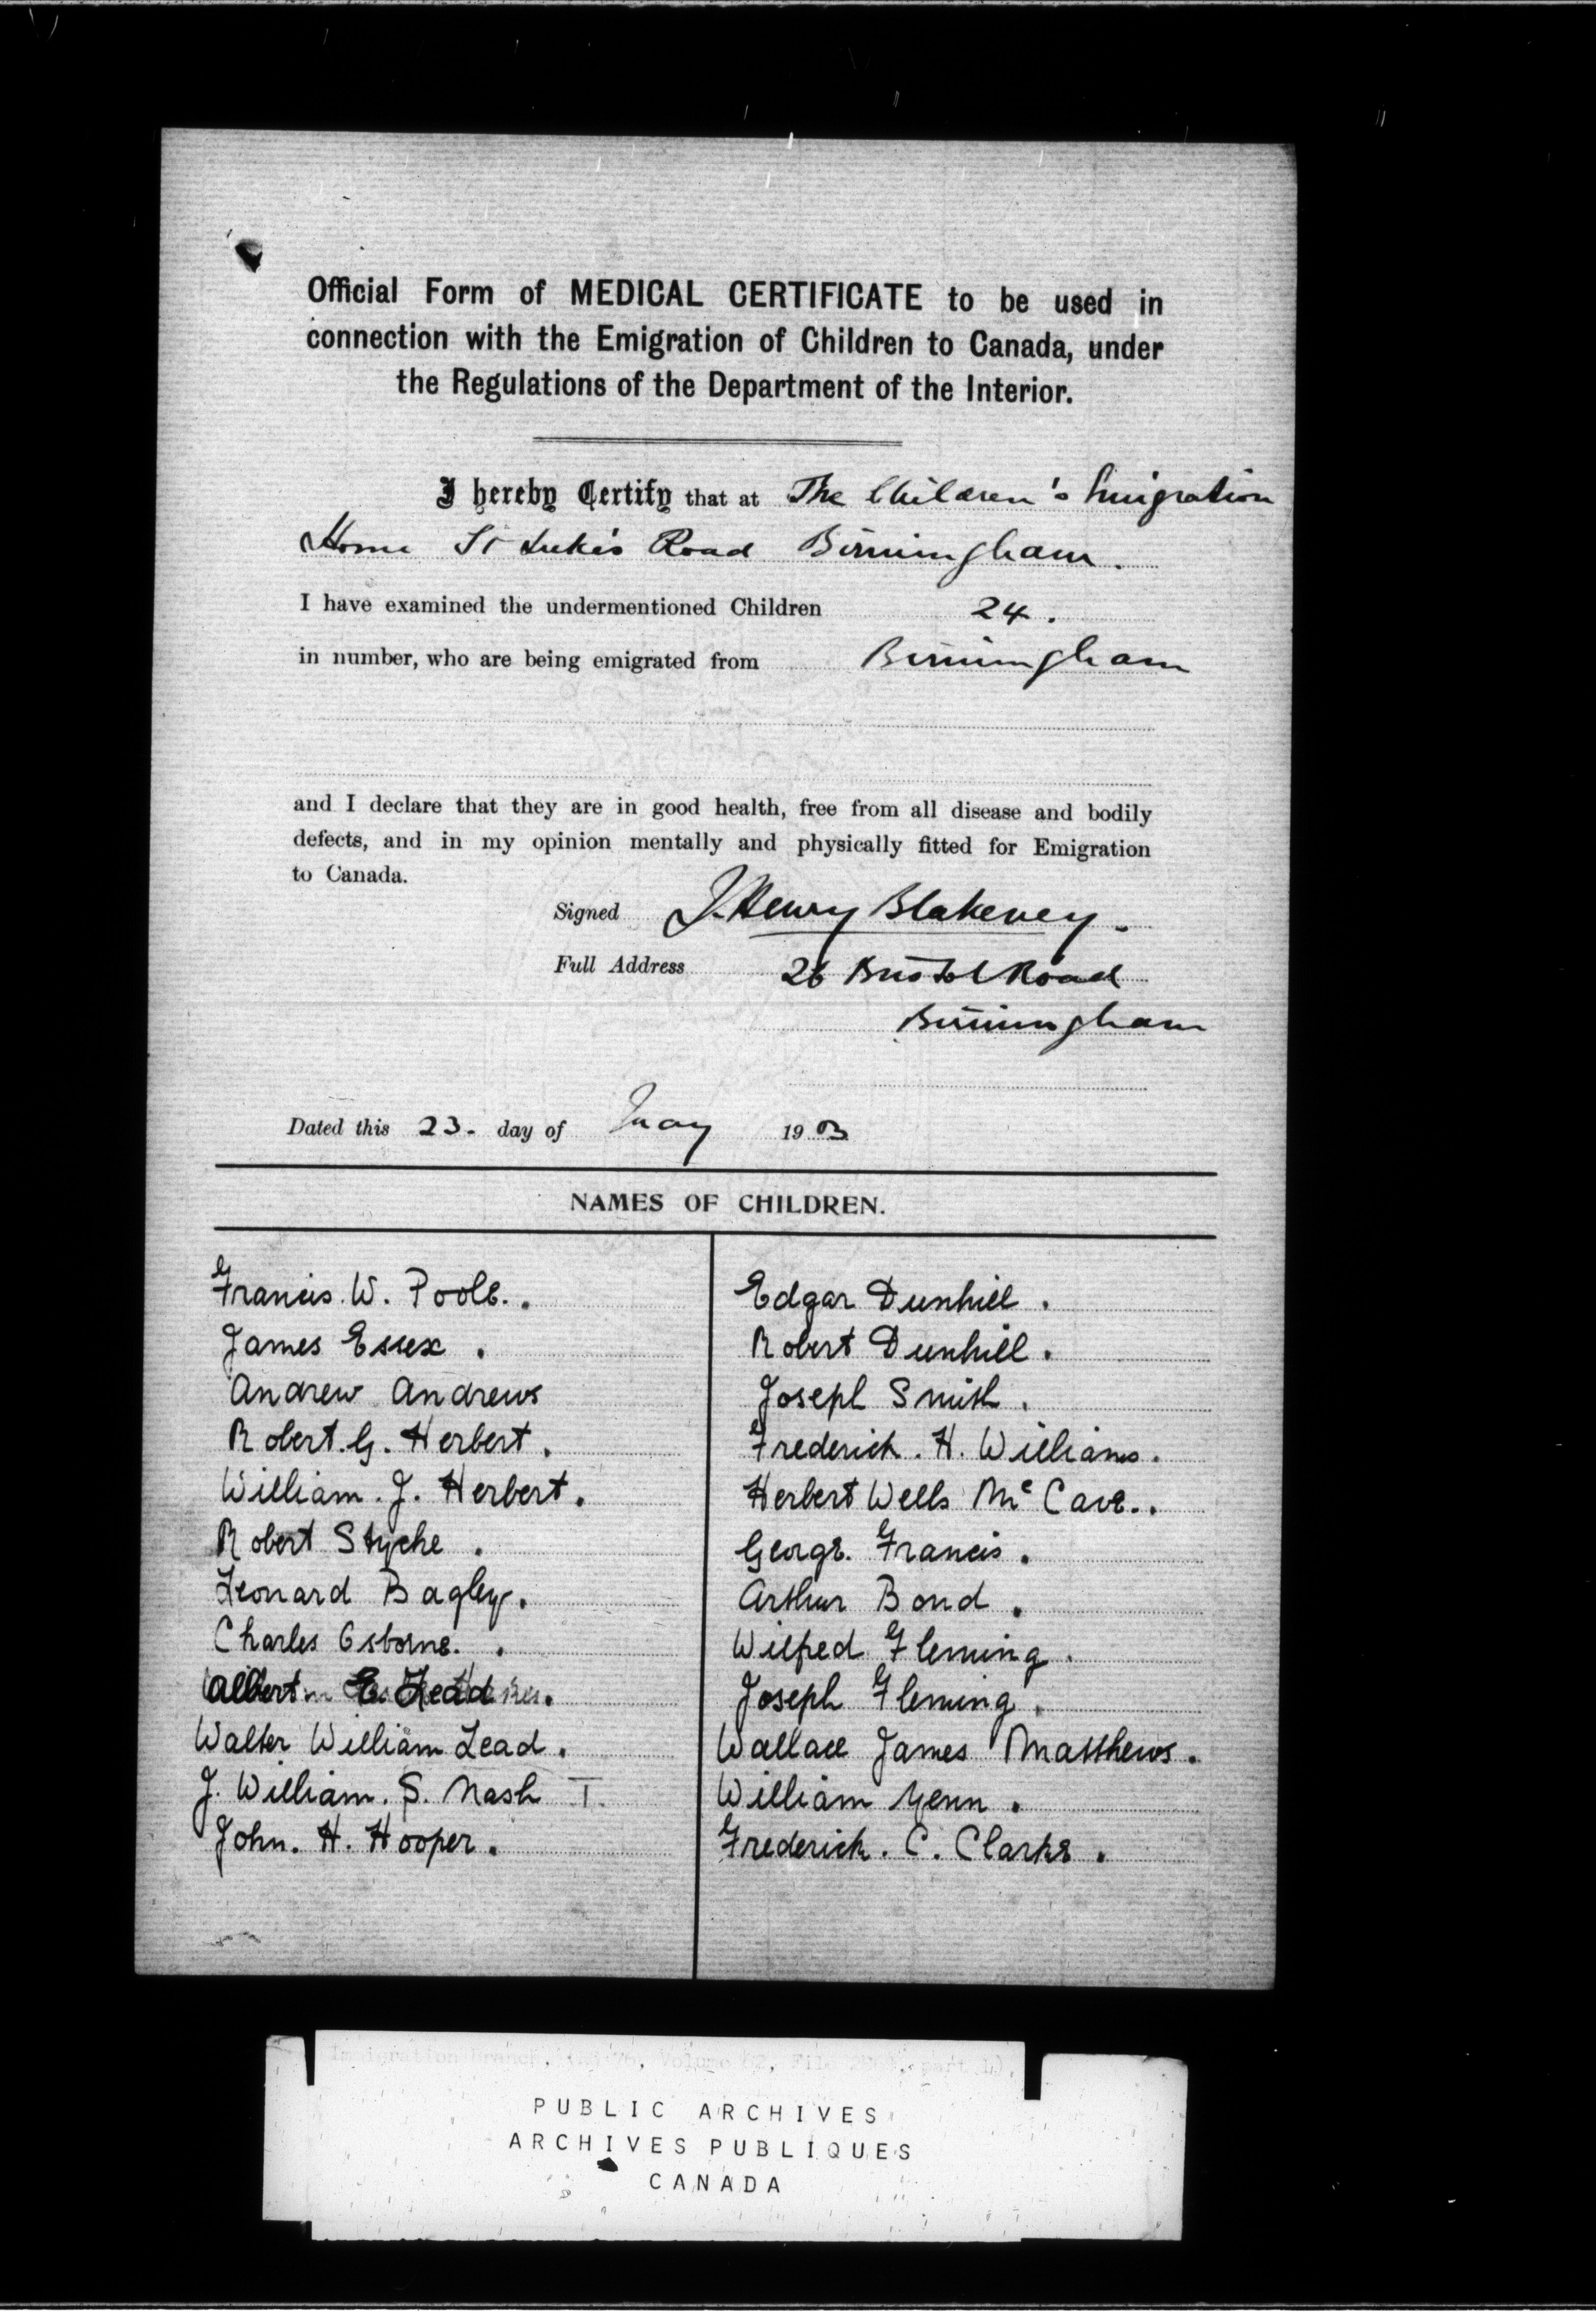 Official Form of MEDICAL CERTIFICATE to be used in
connection with the Emigration of Children to Canada, under
the Regulations of the Department of the Interior.
I hereby Certify that at The Children's Emigration
Home St Luke's Road Birmingham.
I have examined the undermentioned Children 24.
in number, who are being emigrated from Birmingham
and I declare that they are in good health, free from all disease and bodily
defects, and in my opinion mentally and physically fitted for Emigration
to Canada.
Signed J. Henry Blakeney.
Full Address 26 Bristol Road
Birmingham
Dated this 23. day of May 1903
NAMES OF CHILDREN.
Francis. W. Poole.
James Essex.
Andrew Andrews
Robert. G. Herbert.
William. J. Herbert.
Robert Styche.
Leonard Bagley.
Charles Osborne.
Albert E. Lead.
Walter William Lead.
J. William. S. Nash
John. H. Hooper.
Edgar Dunhill.
Robert Dunhill.
Joseph Smith.
Frederick. H. Williams.
Herbert Wells McCave.
George. Francis.
Arthur Bond.
Wilfred Fleming.
Joseph Fleming.
Wallace James Matthews.
William Yenn.
Frederick. C. Clarke.
Immigration Branch, Volume 62, File part
PUBLIC ARCHIVES
ARCHIVES PUBLIQUES
CANADA